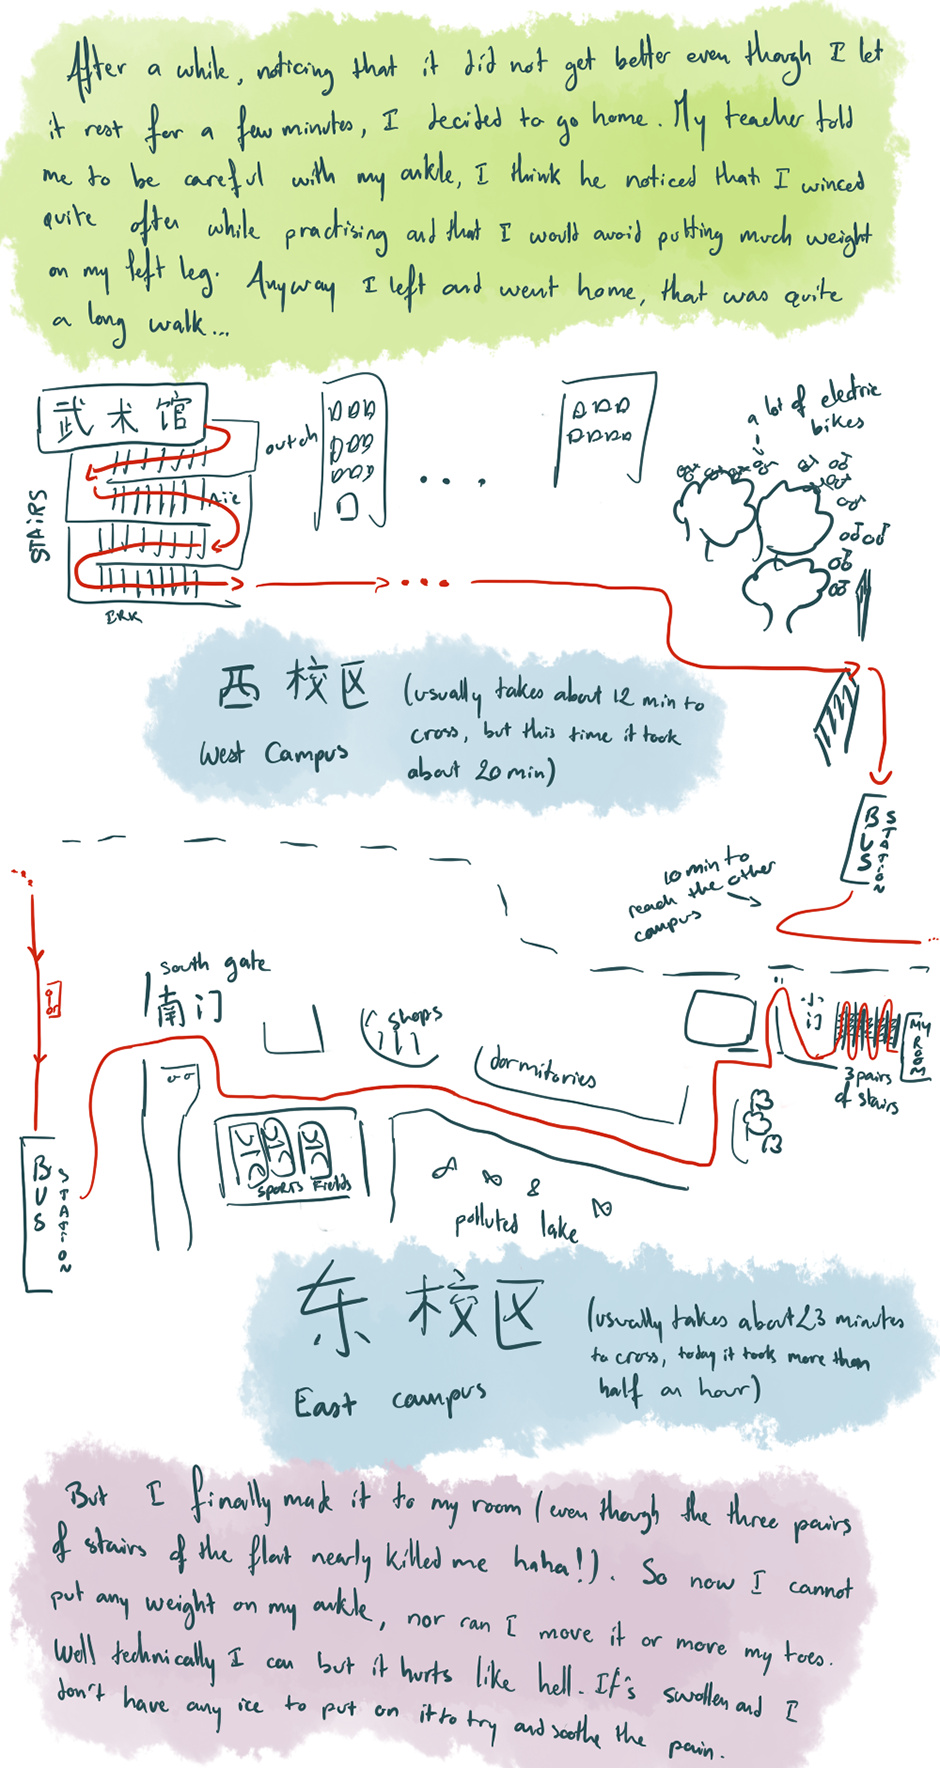 After a while, noticing that it did not get better even though I let
it rest for a few minutes, I decided to go home. My teacher told
me to be careful with my ankle, I think he noticed that I winced
quite often while practising and that I would avoid putting much weight
on my left leg. Anyway I left and went home, that was quite
a long walk...
武术馆
STAIRS
outch
Aïe
ERK
a lot of electric
bikes
西校区
West Campus
(usually takes about 12 min to
cross, but this time it took
about 20 min)
BUS
STATION
10 min to
reach the other
campus
south gate
南门
shops
dormitories
小门
MY
ROOM
3 pairs
of stairs
SPORTS FIELDS
polluted lake
BUS
STATION
东校区
East campus
(usually takes about 23 minutes
to cross, today it took more than
half an hour)
But I finally made it to my room (even though the three pairs
of stairs of the flat nearly killed me haha!). So now I cannot
put any weight on my ankle, nor can I move it or move my toes.
Well technically I can but it hurts like hell. It's swollen and I
don't have any ice to put on it to try and soothe the pain.